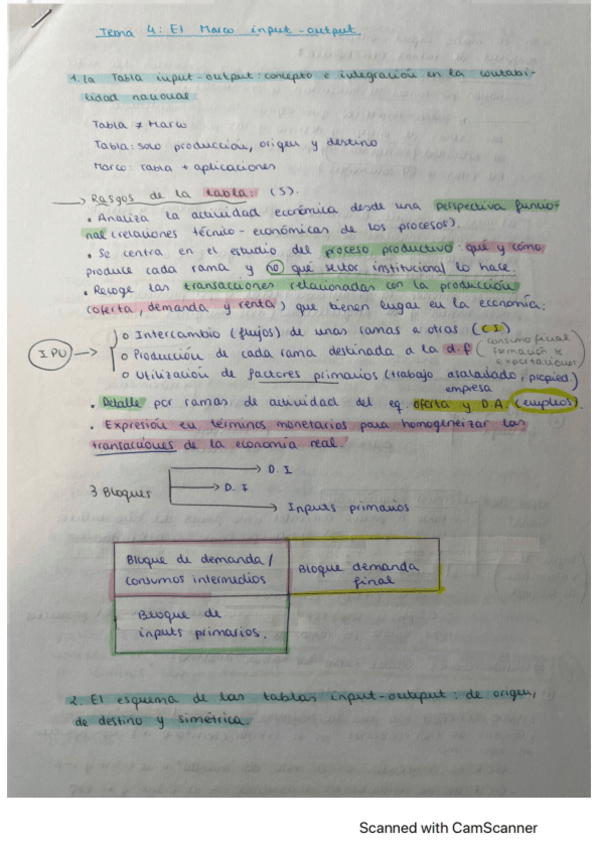 Tema 4: El Marco input-output.
1. La Tabla input-output: concepto e integración en la contabi-
lidad nacional
Tabla ≠ Marco
Tabla: solo producción, origen y destino
Marco: tabla + aplicaciones
→ Rasgos de la tabla: (5).
• Analiza la actividad económica desde una perspectiva funcio-
nal (relaciones técnico-económicas de los procesos).
• Se centra en el estudio del proceso productivo: qué y cómo
produce cada rama y no qué sector institucional lo hace.
• Recoge las transacciones relacionadas con la producción
(oferta, demanda y renta) que tienen lugar en la economía:
o Intercambio (flujos) de unas ramas a otras (CI)
o Producción de cada rama destinada a la d.f (consumo final
formación K
exportaciones)
o Utilización de factores primarios (trabajo asalariado, propied.)
empresa
• Detalle por ramas de actividad del eq. oferta y D.A. (empleos).
• Expresión en términos monetarios para homogeneizar las
transacciones de la economía real.
3 Bloques
→ D. I
→ D. F
→ Inputs primarios
Bloque de demanda /
consumos intermedios
Bloque demanda
final
Bloque de
inputs primarios.
2. El esquema de las tablas input-output: de origen,
de destino y simétrica.
Scanned with CamScanner